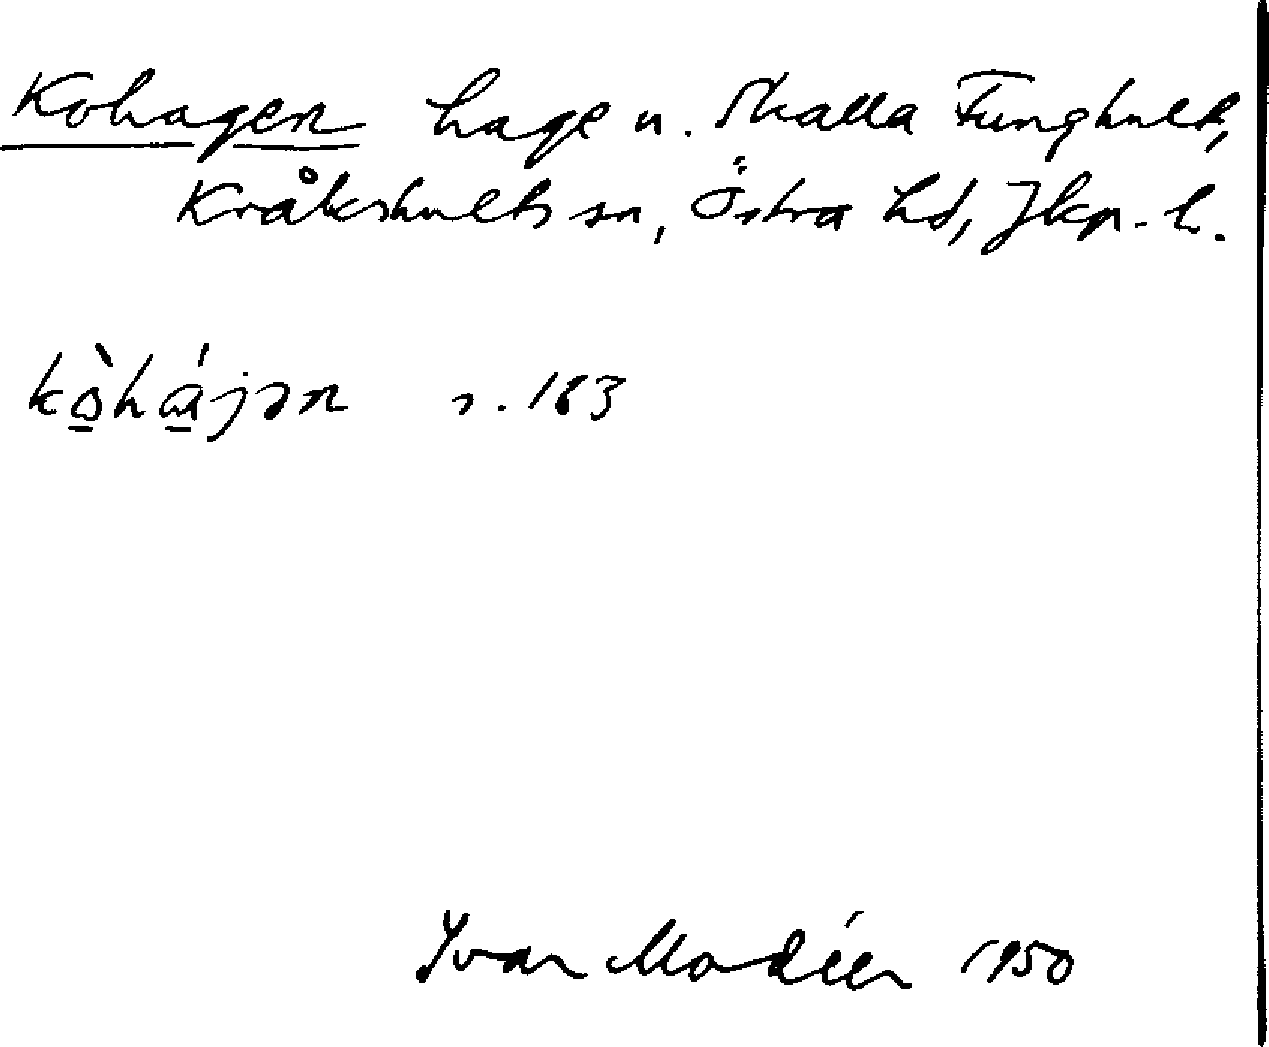 Kohagen hage u. Skalla Funghult,
Kråkshults sn, Östra hd, Jkp. l.
ko̠̊̀há̠jən s. 183
Ivar Modéer 1950